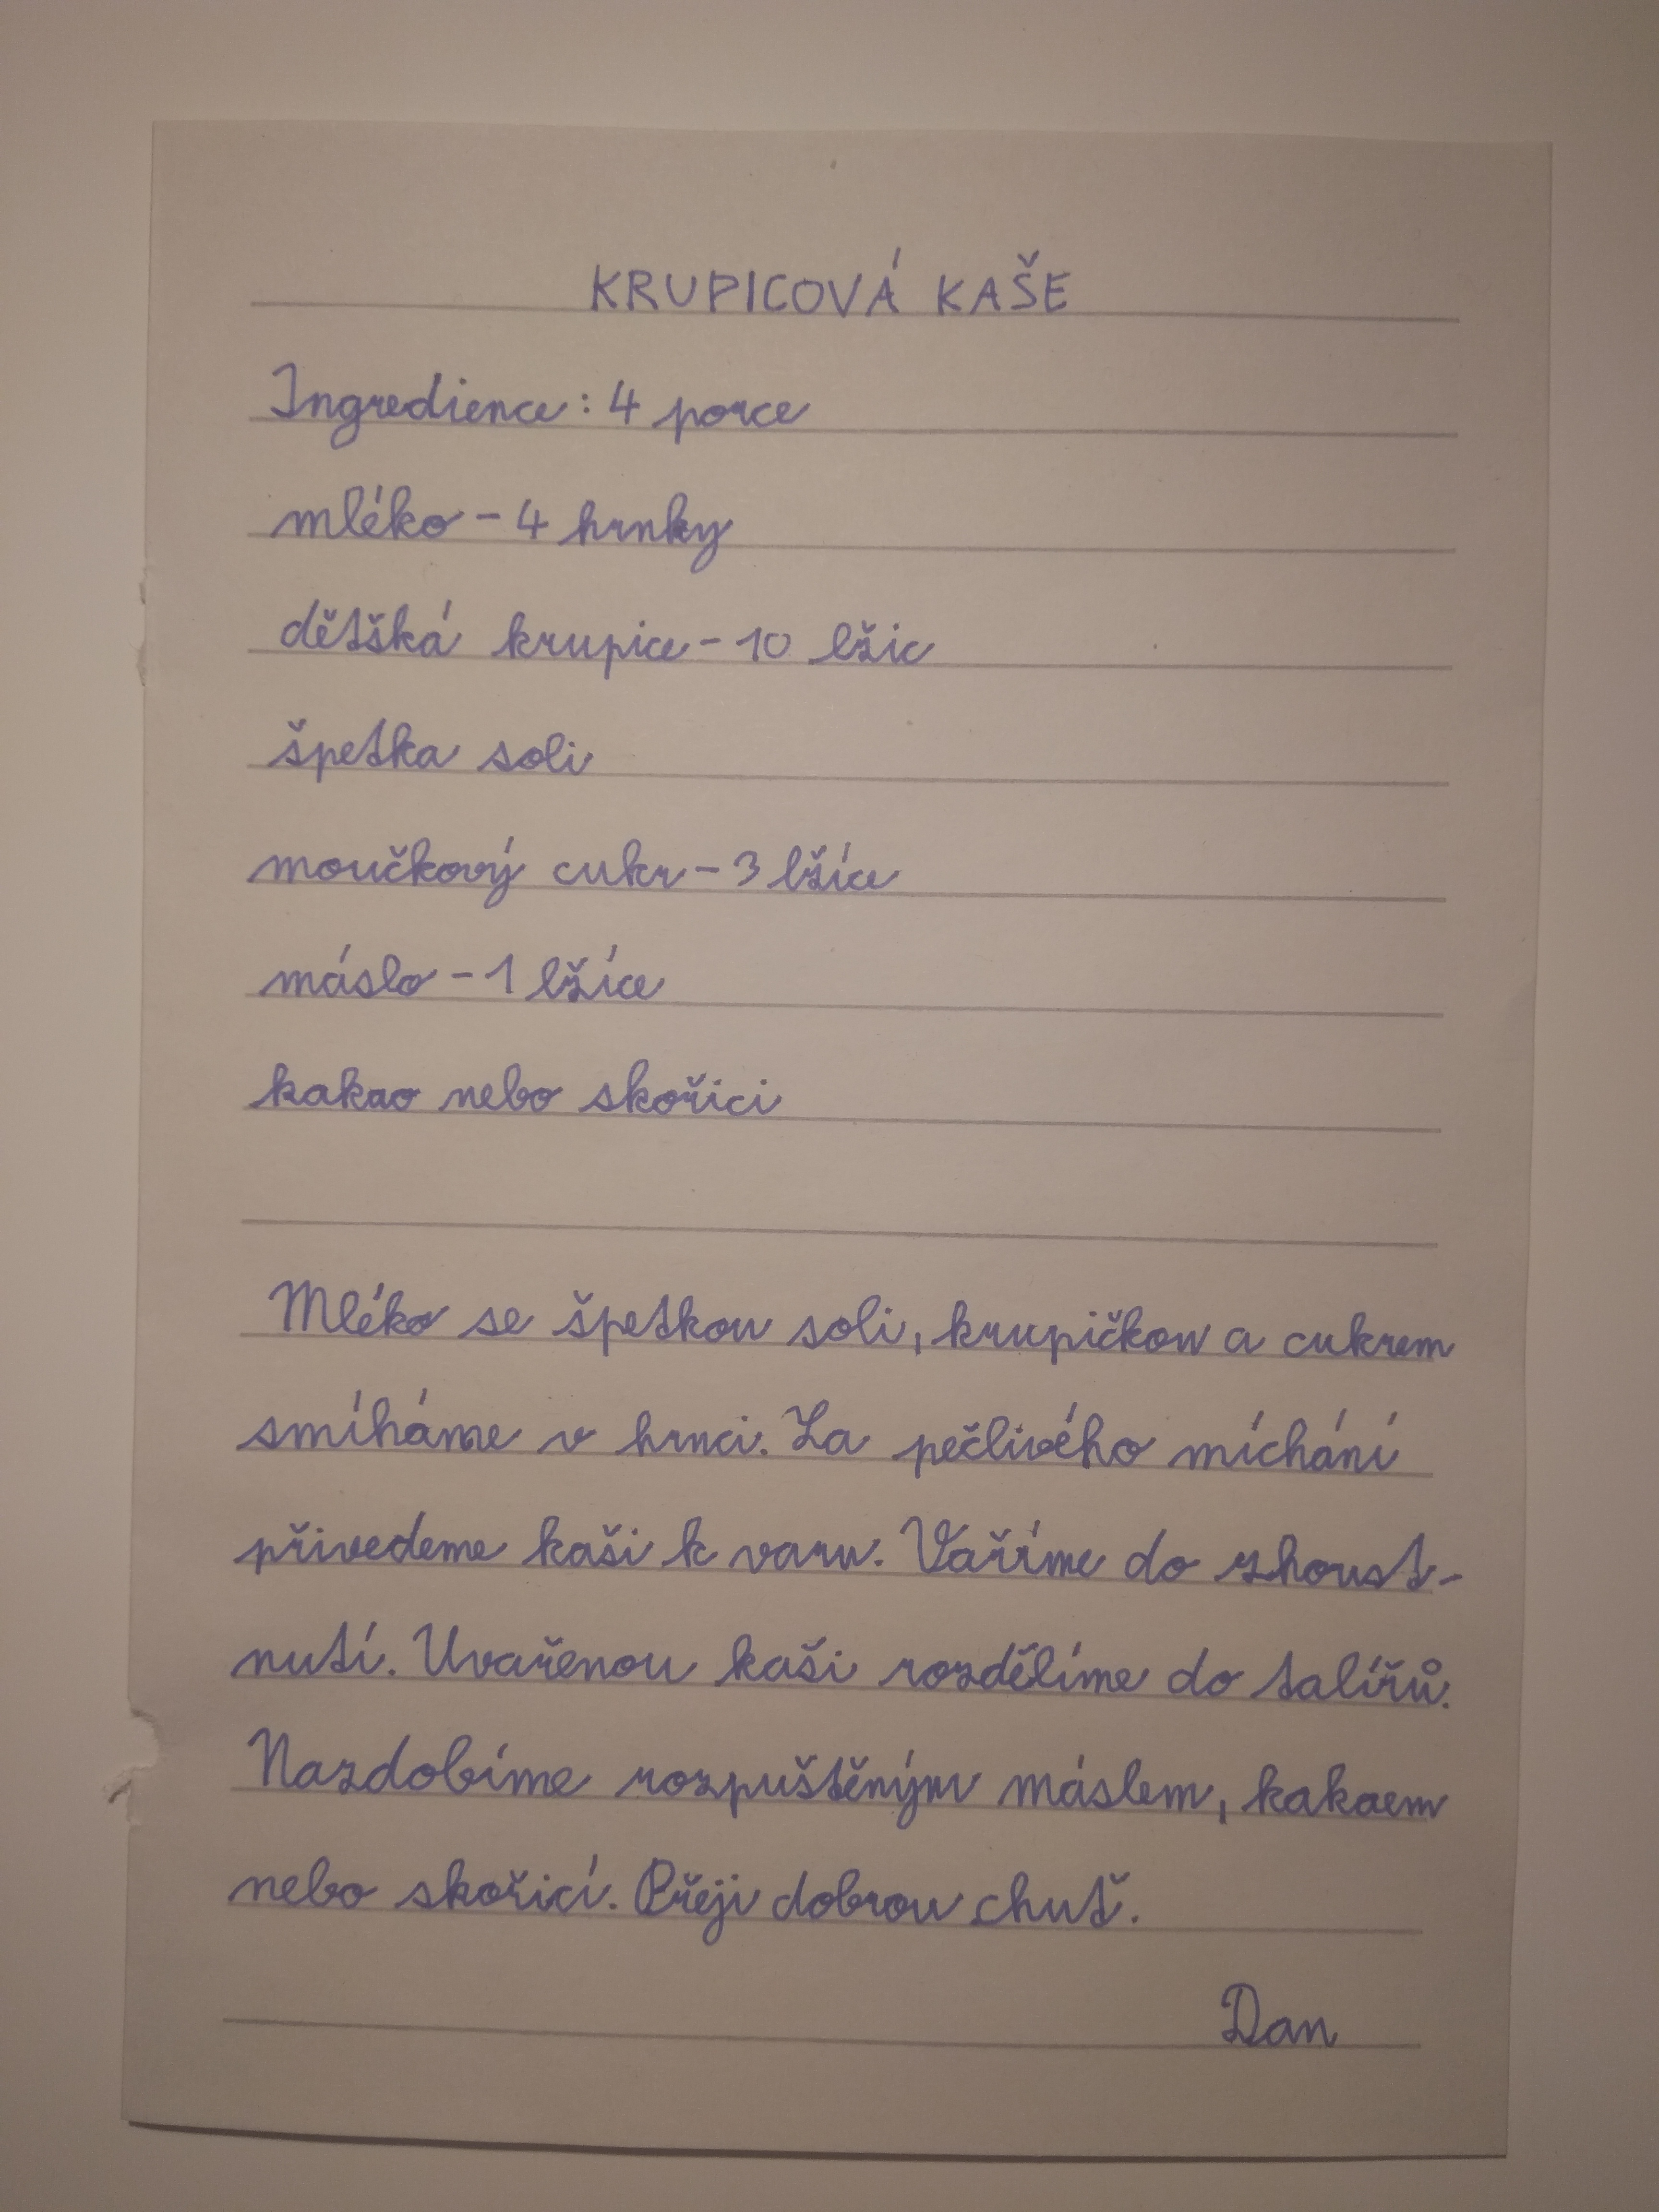 KRUPICOVÁ KAŠE
Ingredience: 4 porce
mléko - 4 hrnky
dětšká krupice - 10 lžic
špetka soli
moučkový cukr - 3 lžíce
máslo - 1 lžíce
kakao nebo skořici
Mléko se špetkou soli, krupičkou a cukrem
smíháme v hrnci. Za pečlivého míchání
přivedeme kaši k varu. Vaříme do zhoust-
nutí. Uvařenou kaši rozdělíme do talířů.
Nazdobíme rozpuštěným máslem, kakaem
nebo skořicí. Přeji dobrou chuť.
Dan